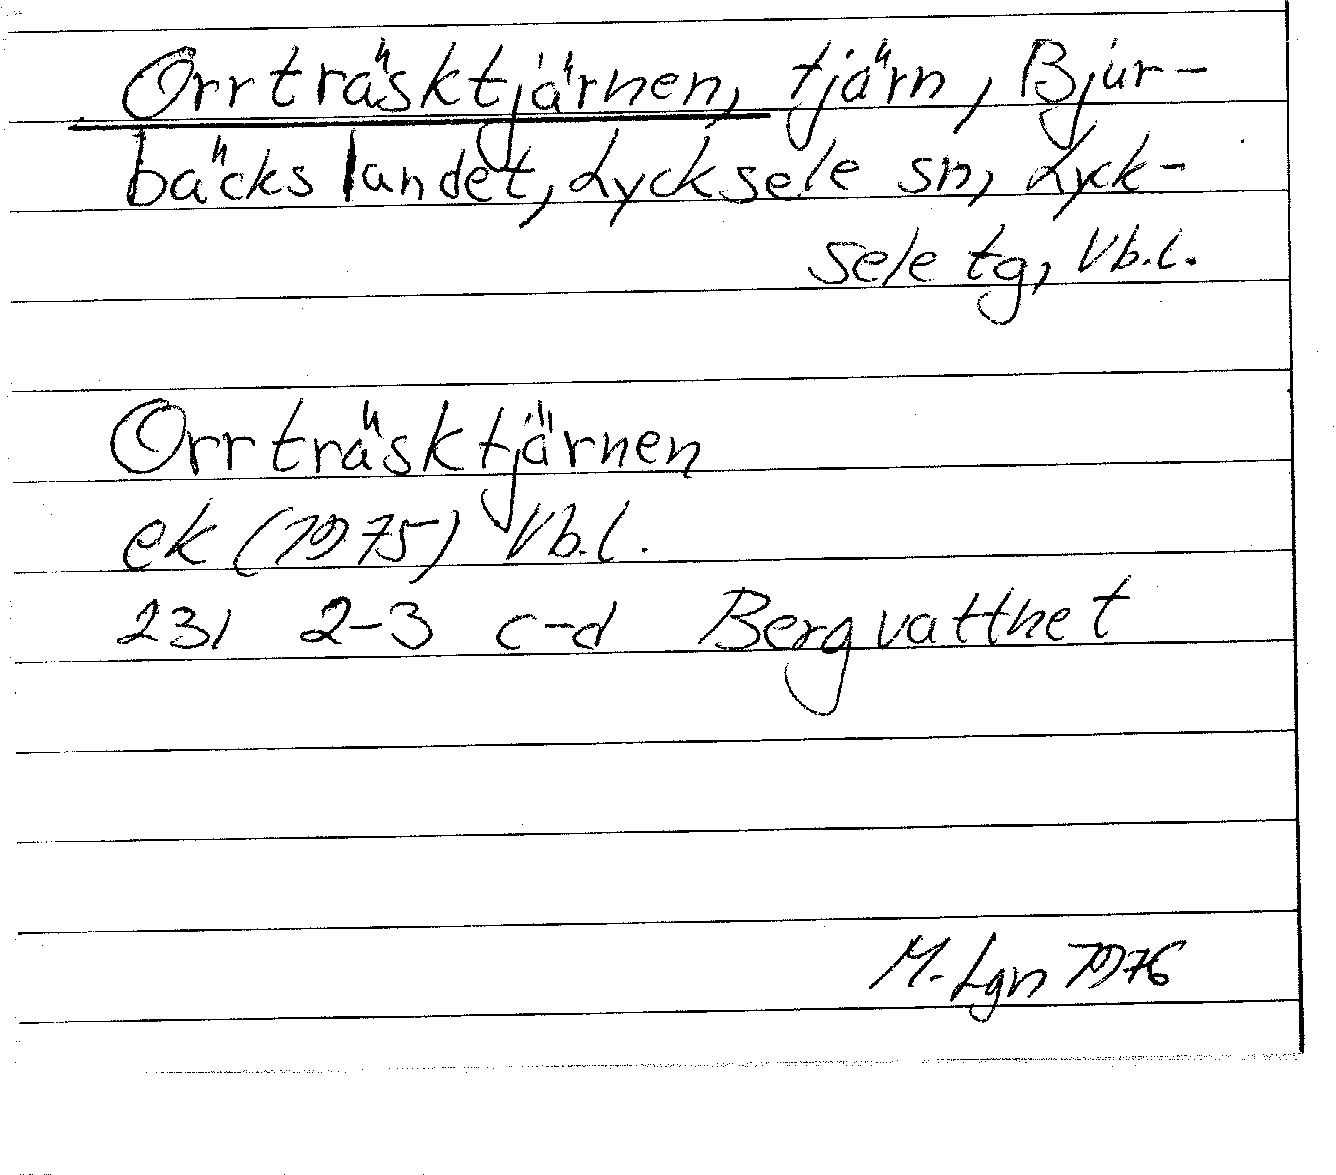 Orrträsktjärnen, tjärn, Bjur-
bäckslandet, Lycksele sn, Lyck-
sele tg, Vb.l.
Orrträsktjärnen
ek (1975) Vb.l.
23I 2-3 c-d Bergvattnet
M. Lgn 1976